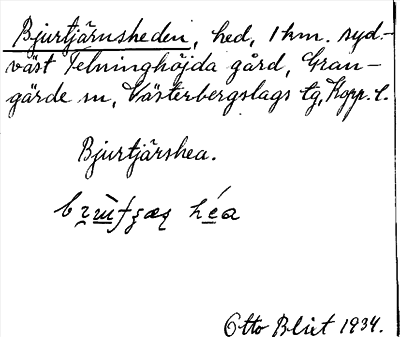 Bjurtjärnsheden, hed, 1 km. syd-
väst Telninghöjda gård, Gran-
gärde sn, Västerbergslags tg, Kopp. l.
Bjurtjärshea.
héa
Otto Blixt 1934.